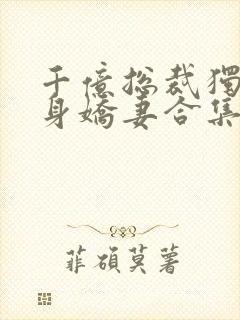 千億總裁獨
身嬌妻合集
菲碩莫著